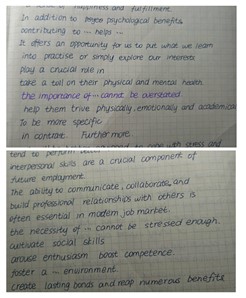 happiness and fulfillment.
In addition to psychological benefits
contributing to ~ helps ~
It offers an opportunity for us to put what we learn
into practise or simply explore our interests
play a crucial role in
take a toll on their physical and mental health
the importance of ~ cannot be overstated
help them trive physically, emotionally and academical
To be more specific
in contrast. Further more
stress and
tend to perform
interpersonal skills are a crucial component of
future employment.
The ability to communicate, collaborate, and
build professional relationships with others is
often essential in modern job market.
the necessity of ~ cannot be stressed enough.
cultivate social skills
arouse enthusiasm boost competence.
foster a ~ environment.
create lasting bonds and reap numerous benefits